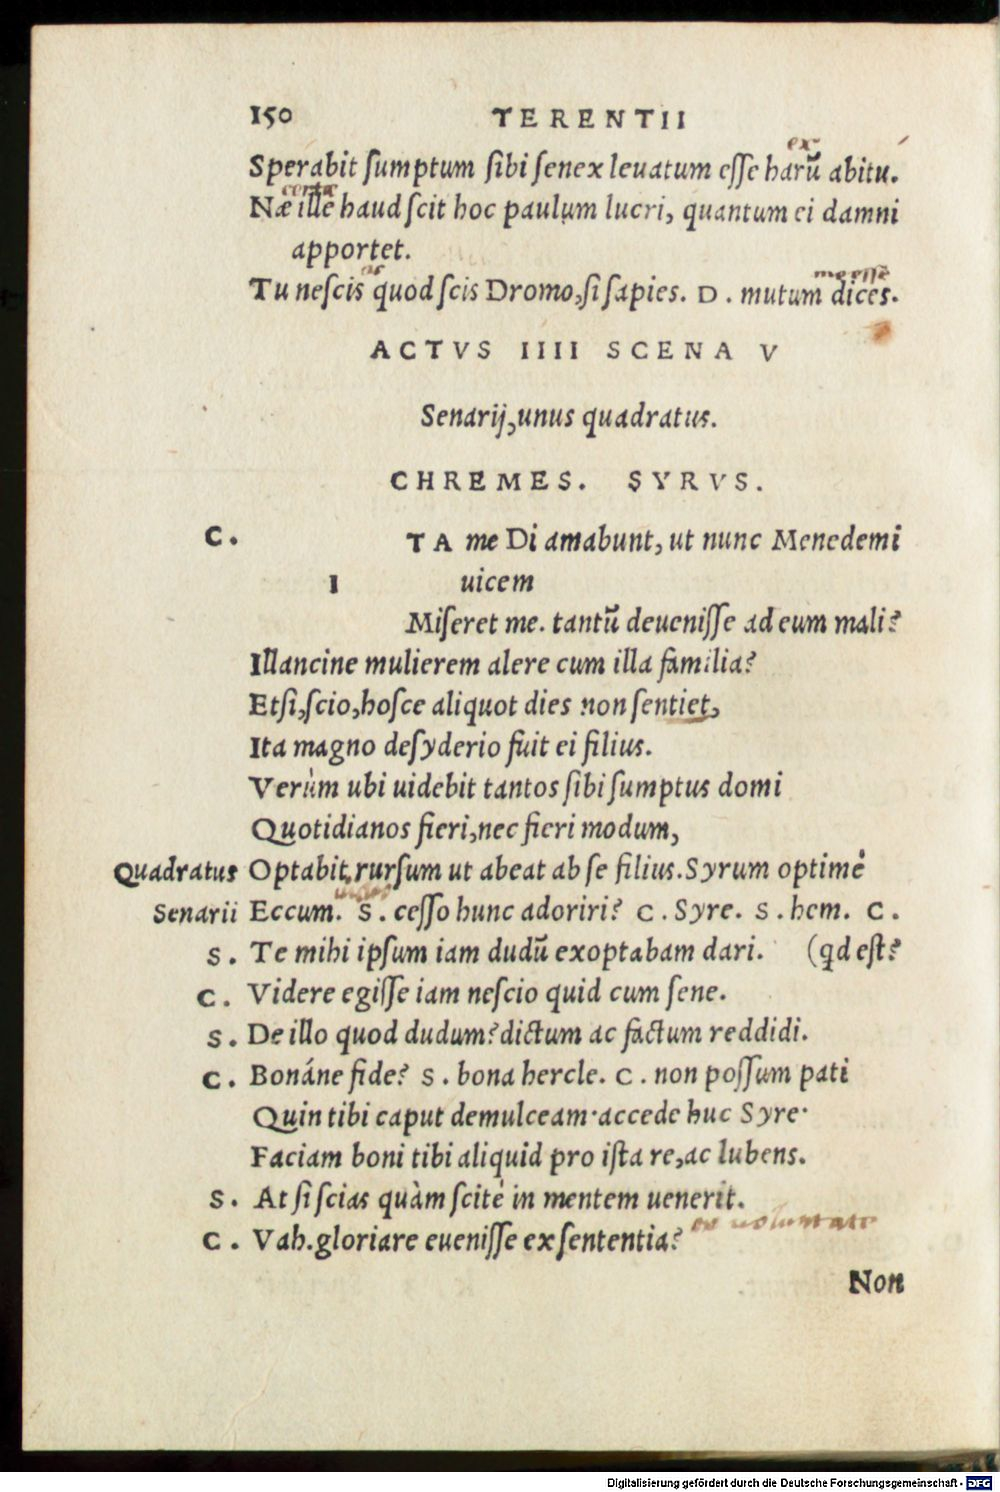 150 TERENTII
ex
Sperabit ſumptum ſibi ſenex leuatum eſſe harū abitu.
certæ
Næ ille haud ſcit hoc paulum lucri, quantum ei damni
apportet.
as me eſſe
Tu neſcis quod ſcis Dromo,ſi ſapies. D. mutum dices.
ACTVS IIII SCENA V
Senarij,unus quadratus.
CHREMES. SYRVS.
C. TA me Di amabunt, ut nunc Menedemi
I uicem
Miſeret me. tantū deueniſſe ad eum mali?
Illancine mulierem alere cum illa familia?
Etſi,ſcio,hoſce aliquot dies non ſentiet,
Ita magno deſyderio fuit ei filius.
Verùm ubi uidebit tantos ſibi ſumptus domi
Quotidianos fieri,nec fieri modum,
Quadratus Optabit,rurſum ut abeat ab ſe filius.Syrum optimè
Senarii Eccum. S. ceſſo hunc adoriri? C. Syre. S. hem. C.
S. Te mihi ipſum iam dudū exoptabam dari. (qd eſt?
C. Videre egiſſe iam neſcio quid cum ſene.
S. De illo quod dudum?dictum ac factum reddidi.
C. Bonáne fide? S. bona hercle. C. non poſſum pati
Quin tibi caput demulceam·accede huc Syre·
Faciam boni tibi aliquid pro iſta re,ac lubens.
S. At ſi ſcias quàm ſcitè in mentem uenerit.
ex uoluntate
C. Vah.gloriare eueniſſe ex ſententia?
Non
Digitalisierung gefördert durch die Deutsche Forschungsgemeinschaft - DFG